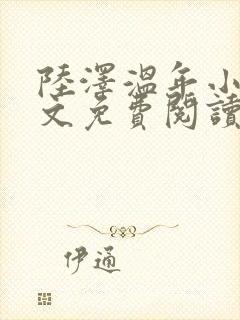 陸澤溫年小
文免費閱讀
伊通